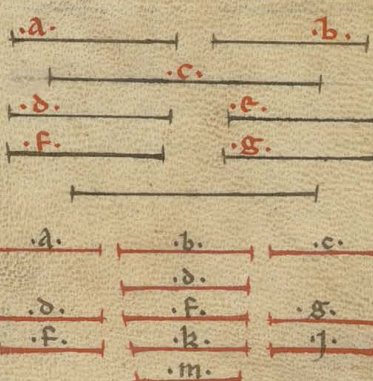 .a. .b.
.c.
.d. .e.
.f. .g.
.a. .b. .c.
.d.
.d. .f. .g.
.f. .k. .j.
.m.